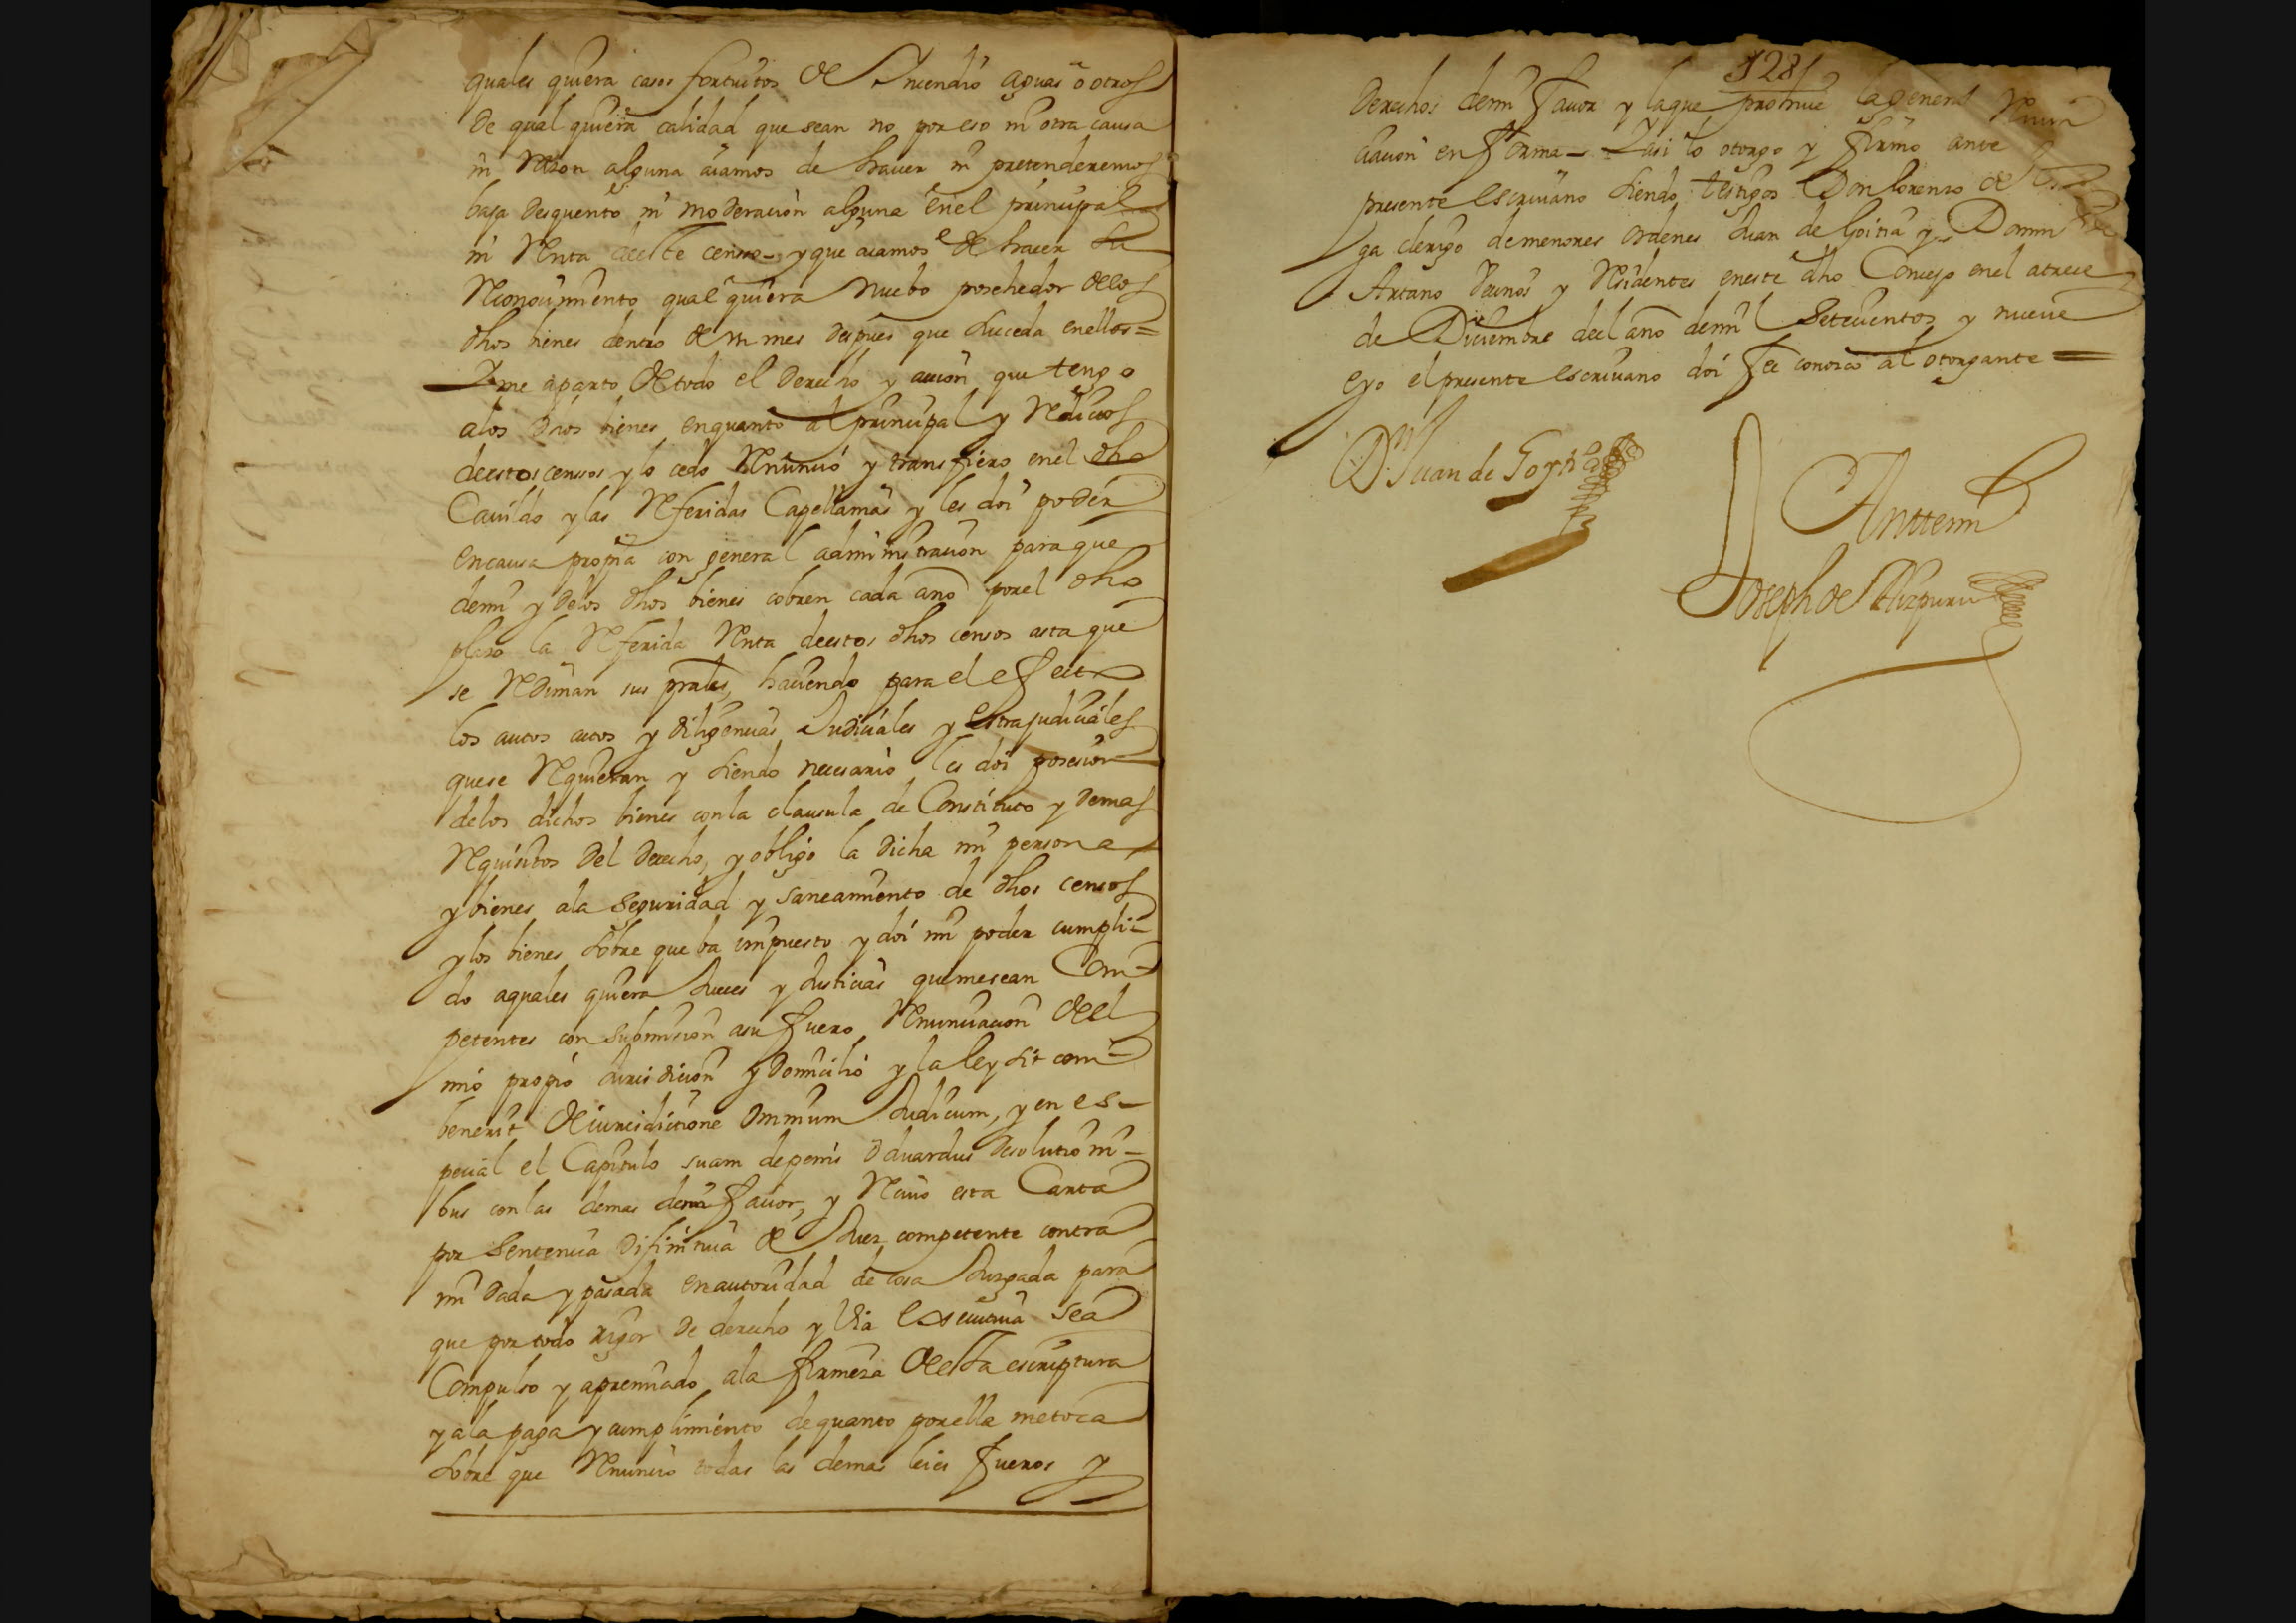 quales quiera casos fortuitos de Incendio aguas o otros
de qual quiera calidad que sean no por eso ni otra causa
ni Razon alguna aiamos de haver ni pretenderemos
baja desquento ni moderacion alguna enel principal
ni Renta deeste censso y que aiamos de hacer su
Reconocimiento qual quiera nuebo posehedor de los
dhos bienes dentro de un mes despues que suceda enellos =
Y me aparto de todo el derecho y accion que tengo
alos dhos bienes enquanto al principal y Reditos
deestos censos y lo cedo Renuncio y transfiero enel dho
Cavildo y las Referidas Capellanias y les doi poder
encausa propia con general administracion paraque
demi y delos dhos bienes cobren cada año porel dho
plazo la Referida Renta deestos dhos censos asta que
se Rediman sus prales, haciendo para el efecto
los autos actos y diligencias Judiciales y estrajudiciales
quese Requieran y siendo necesario les doi posesion
delos dichos bienes conla clausula de Constituto y demas
Requisitos del derecho, y obligo la dicha mi persona
y bienes ala seguridad y saneamiento de dhos censos
y los bienes sobre que ba impuesto y doi mi poder cumpli-
do aquales quiera Jueces y Justicias quemesean Com-
petentes con submision asu fuero Renunciacion deel
mio propio Jurisdicion y Domicilio y la ley sit com-
benerit de iurisdictione omnium Judicum, y en es-
pecial el Capitulo suam de penis Oduardus de solutioni-
bus con las demas demi favor, y Recivo esta Carta
por Sentencia difinitiva de Juez competente contra
mi dada y pasada en autoridad de cosa Juzgada para
que por todo rigor de derecho y via executiva sea
Compulso y apremiado ala firmeza deesta escriptura
y ala paga y cumplimiento dequanto porella metoca
sobre que Renuncio todas las demas leies fueros y
128
derechos demi favor y laque prohive la general Renun
ciacion en forma Y asi lo otorgo y firmo ante
presente escrivano siendo testigos Don Lorenzo de
ga clerigo de menores ordenes Juan de Goitia y Domin
Artano vecinos y Residentes eneste dho Concejo enel a trece
de Diciembre deel año demil Setecientos y nueve
e yo el presente escrivano doi fee conozco al otorgante =
Dn Juan de Goytia
Antemi
Joseph de Aizpuru